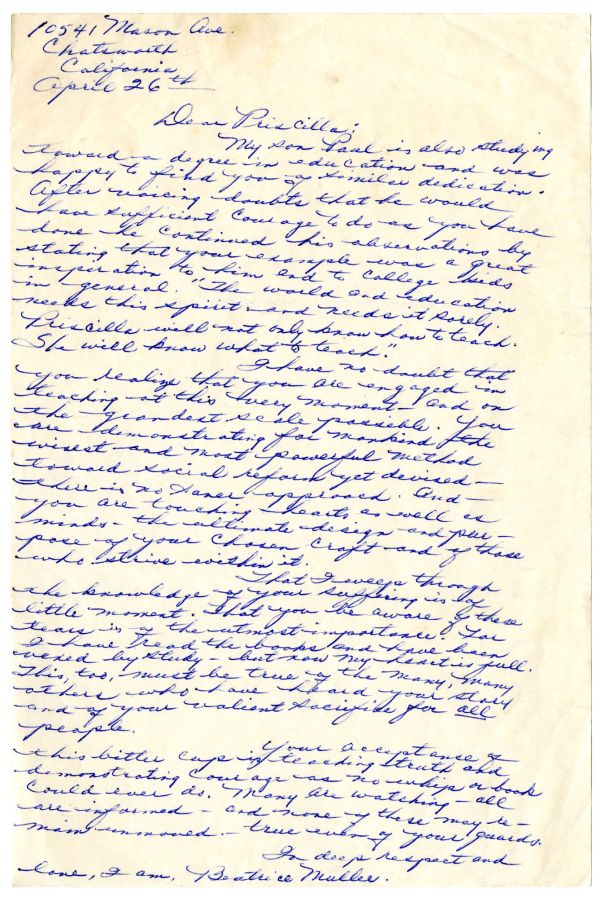 10541 Mason Ave.
Chatsworth
California
April 26th
Dear Priscilla:
My son Paul is also studying
toward a degree in education and was
happy to find you of similar dedication.
After voicing doubts that he would
have sufficient courage to do as you have
done he continued his observations by
stating that your example was a great
inspiration to him and to college kids
in general. "The world and education
needs this spirit and needs it sorely.
Priscilla will not only know how to teach.
She will know what to teach."
I have no doubt that
you realize that you are engaged in
teaching at this very moment - and on
the grandest scale possible. You
are demonstrating for mankind the
wisest and most powerful method
toward social reform yet devised -
there is no saner approach. And -
you are touching hearts as well as
minds - the ultimate design and pur-
pose of your chosen craft and of those
who strive within it.
That I weep through
the knowledge of your suffering is of
little moment. That you be aware of these
tears is of the utmost importance. For
I have read the books and have been
vexed by study - but now my heart is full.
This, too, must be true of the many, many
others who have heard your story
and of your valient sacrifise for all
people.
Your acceptance of
this bitter cup is teaching truth and
demonstrating courage as no whips or book
could ever do. Many are watching - all
are informed - and none of these may re-
main unmoved. - true even of your guards.
In deep respect and
love, I am, Beatrice Muller.